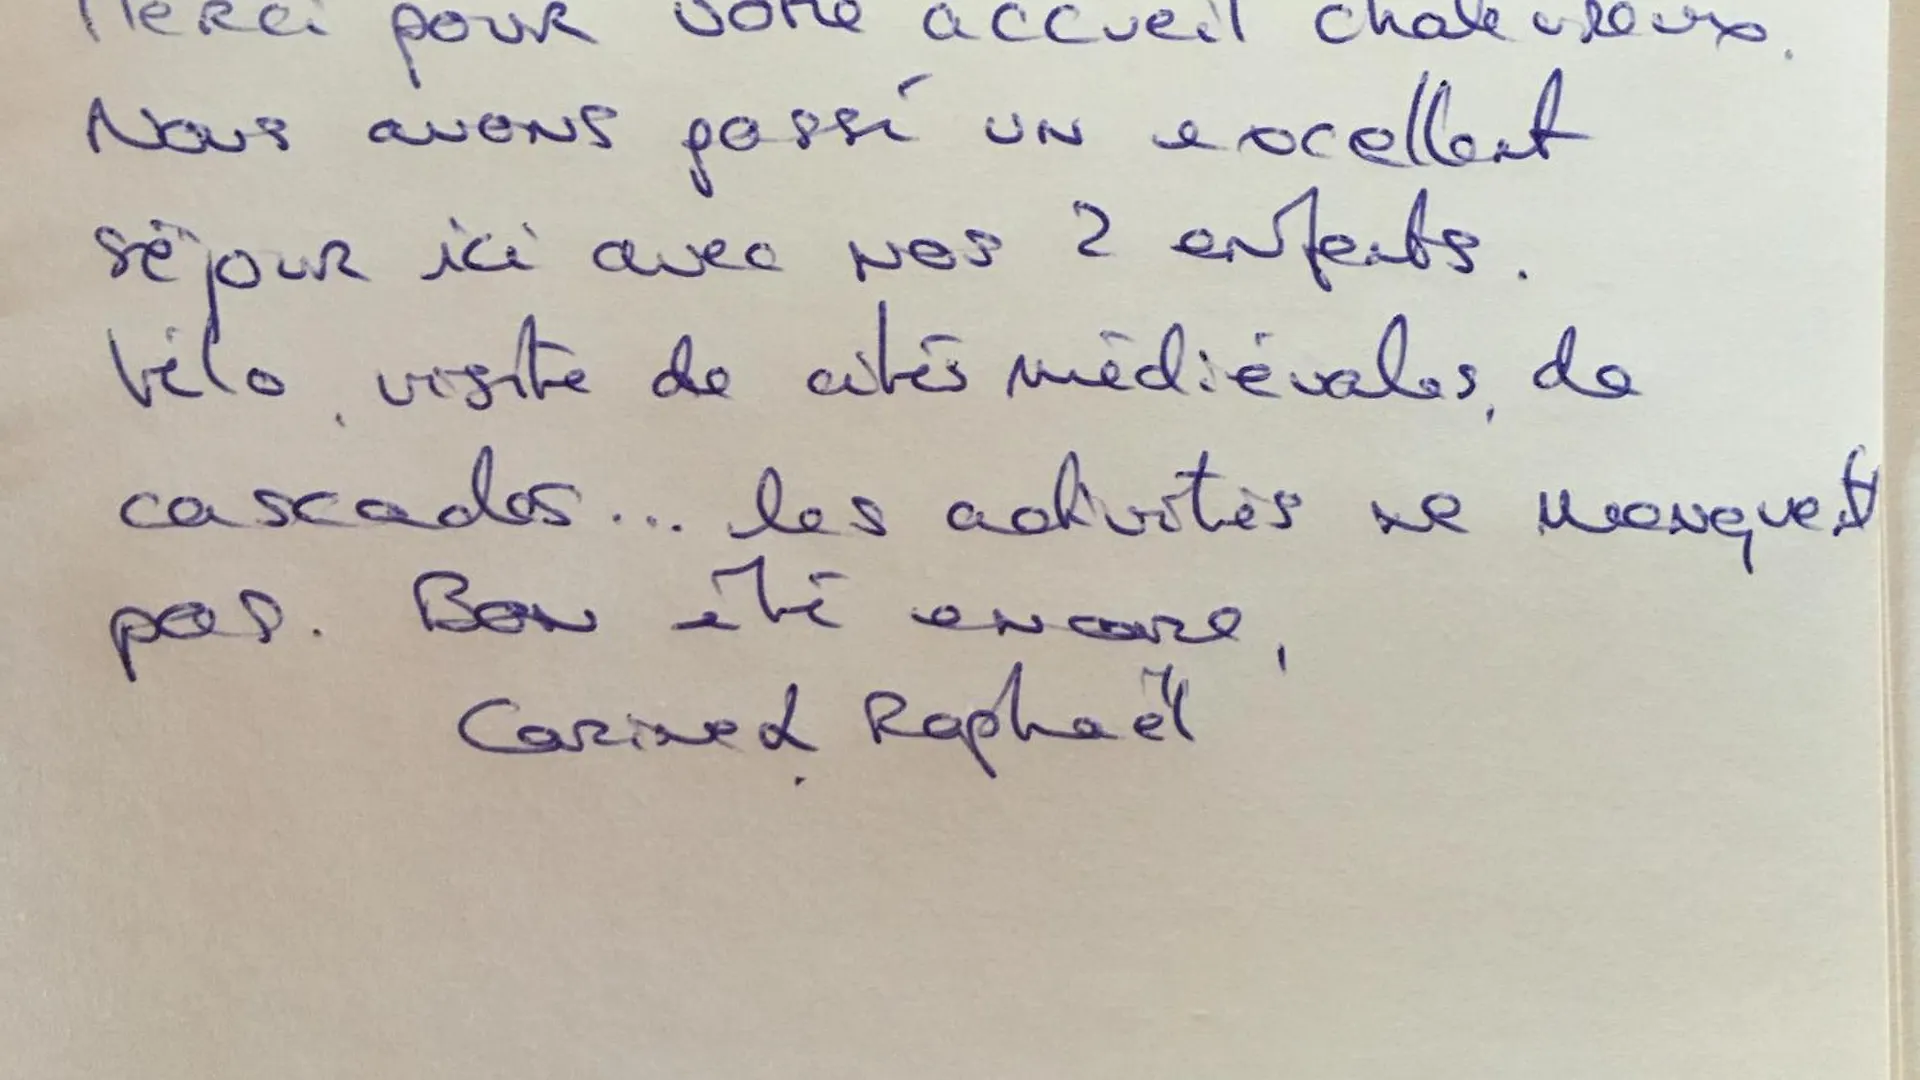 Merci pour votre accueil chaleureux.
Nous avons passé un excellent
séjour ici avec nos 2 enfants.
Vélo, visite de cités médiévales, de
cascades... les activités ne manquent
pas. Bon été encore,
Carine & Raphaël